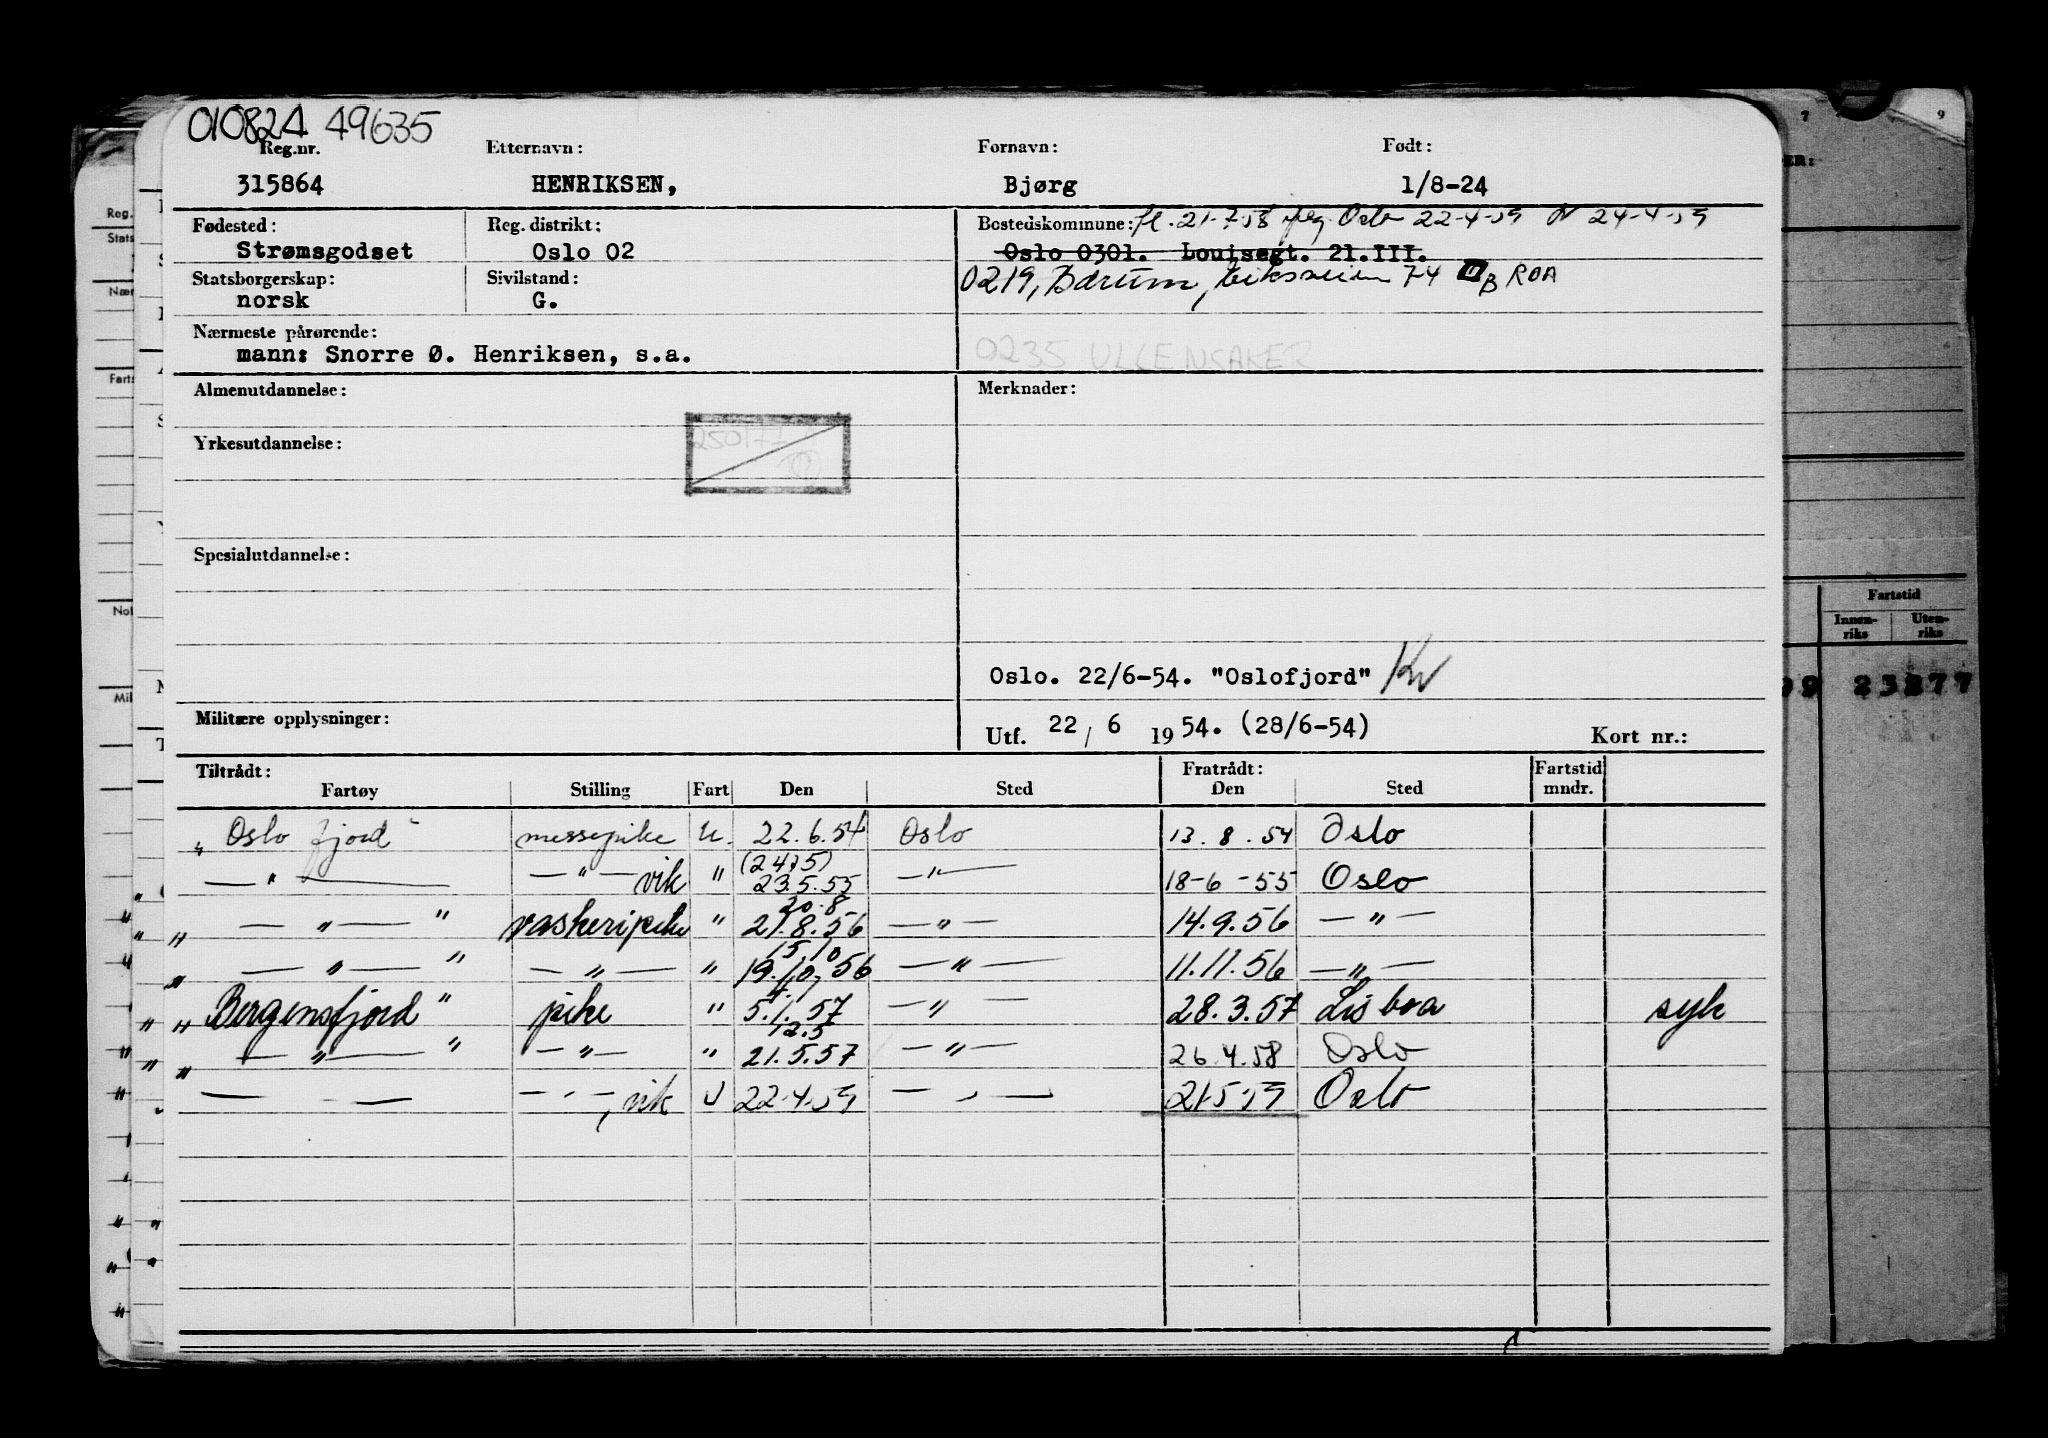 010824 49635
Reg.nr. Etternavn: Fornavn: Født:
315864 HENRIKSEN, Bjørg 1/8-24
Fødested: Reg. distrikt: Bostedskommune: fl. 21-7-58 Oslo 22-4-59 24-4-59
Strømsgodset Oslo 02 Oslo 0301. Louisegt. 21.III.
Statsborgerskap: Sivilstand: 0219, Bærum, Eiksveien 74 B RØA
norsk G.
Nærmeste pårørende:
mann: Snorre Ø. Henriksen, s.a. 0235 ULLENSAKER
Almenutdannelse: Merknader:
250177
Yrkesutdannelse:
Spesialutdannelse:
Oslo. 22/6-54. "Oslofjord"
Militære opplysninger:
Utf. 22/6 1954. (28/6-54) Kort nr.:
Tiltrådt: Fratrådt: Fartstid
Fartøy Stilling Fart Den Sted Den Sted mndr.
"Oslofjord" messepike U. 22.6.54 Oslo 13.8.54 Oslo
(24/5)
— " — — " — vik " 23.5.55 — " — 18-6-55 Oslo
20.8
" — " — " vaskeripike " 21.8.56 — " — 14.9.56 — " —
15.10
" — " — " — " — " 19.10.56 — " — 11.11.56 — " —
"Bergensfjord" pike " 5.1.57 — " — 28.3.57 Lisboa syk
12.5
" — " — " — " — " 21.5.57 — " — 26.4.58 Oslo
— — — " —, vik U 22-4-59 — " — 21-5-59 Oslo
7 9
Fartstid
Innen-riks Uten-riks